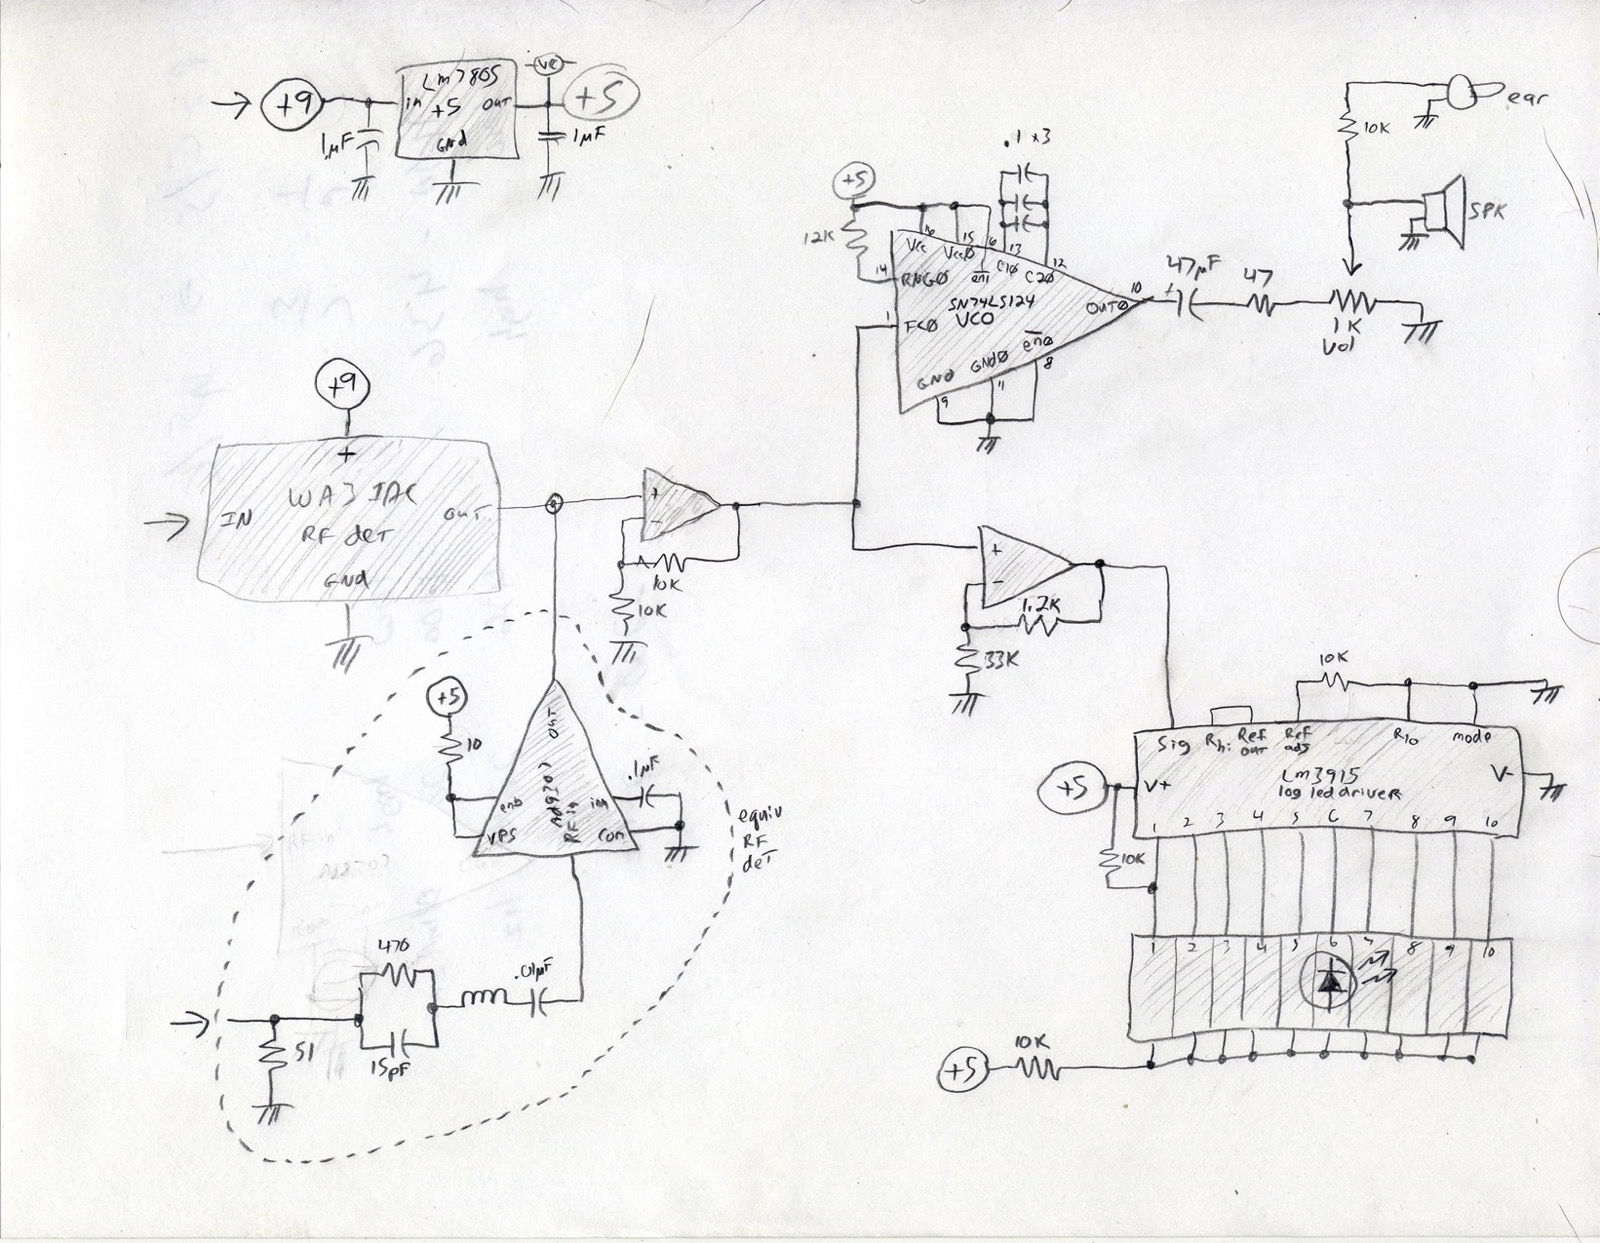 +9
in
LM7805
+5
OUT
GND
VR
+5
1µF
1µF
+5
.1 x3
12K
16
15
6
13
12
Vcc
VccØ
en1
C1Ø
C2Ø
14
RNGØ
SN74LS124
VCO
OUTØ
10
1
FCØ
enØ
GNDØ
GND
8
11
9
+
47µF
47
1K
Vol
10K
ear
SPK
+9
+
WA3IAC
IN
OUT
RF det
GND
+
-
10K
10K
+
-
1.2K
33K
+5
10
OUT
enb
VPS
RFin
inn
com
.1µF
equiv
RF
det
470
.01µF
15pF
51
10K
Sig
Rhi
Ref
out
Ref
adj
Rlo
mode
+5
V+
LM3915
log led driver
V-
1 2 3 4 5 6 7 8 9 10
10K
1 2 3 4 5 6 7 8 9 10
+5
10K